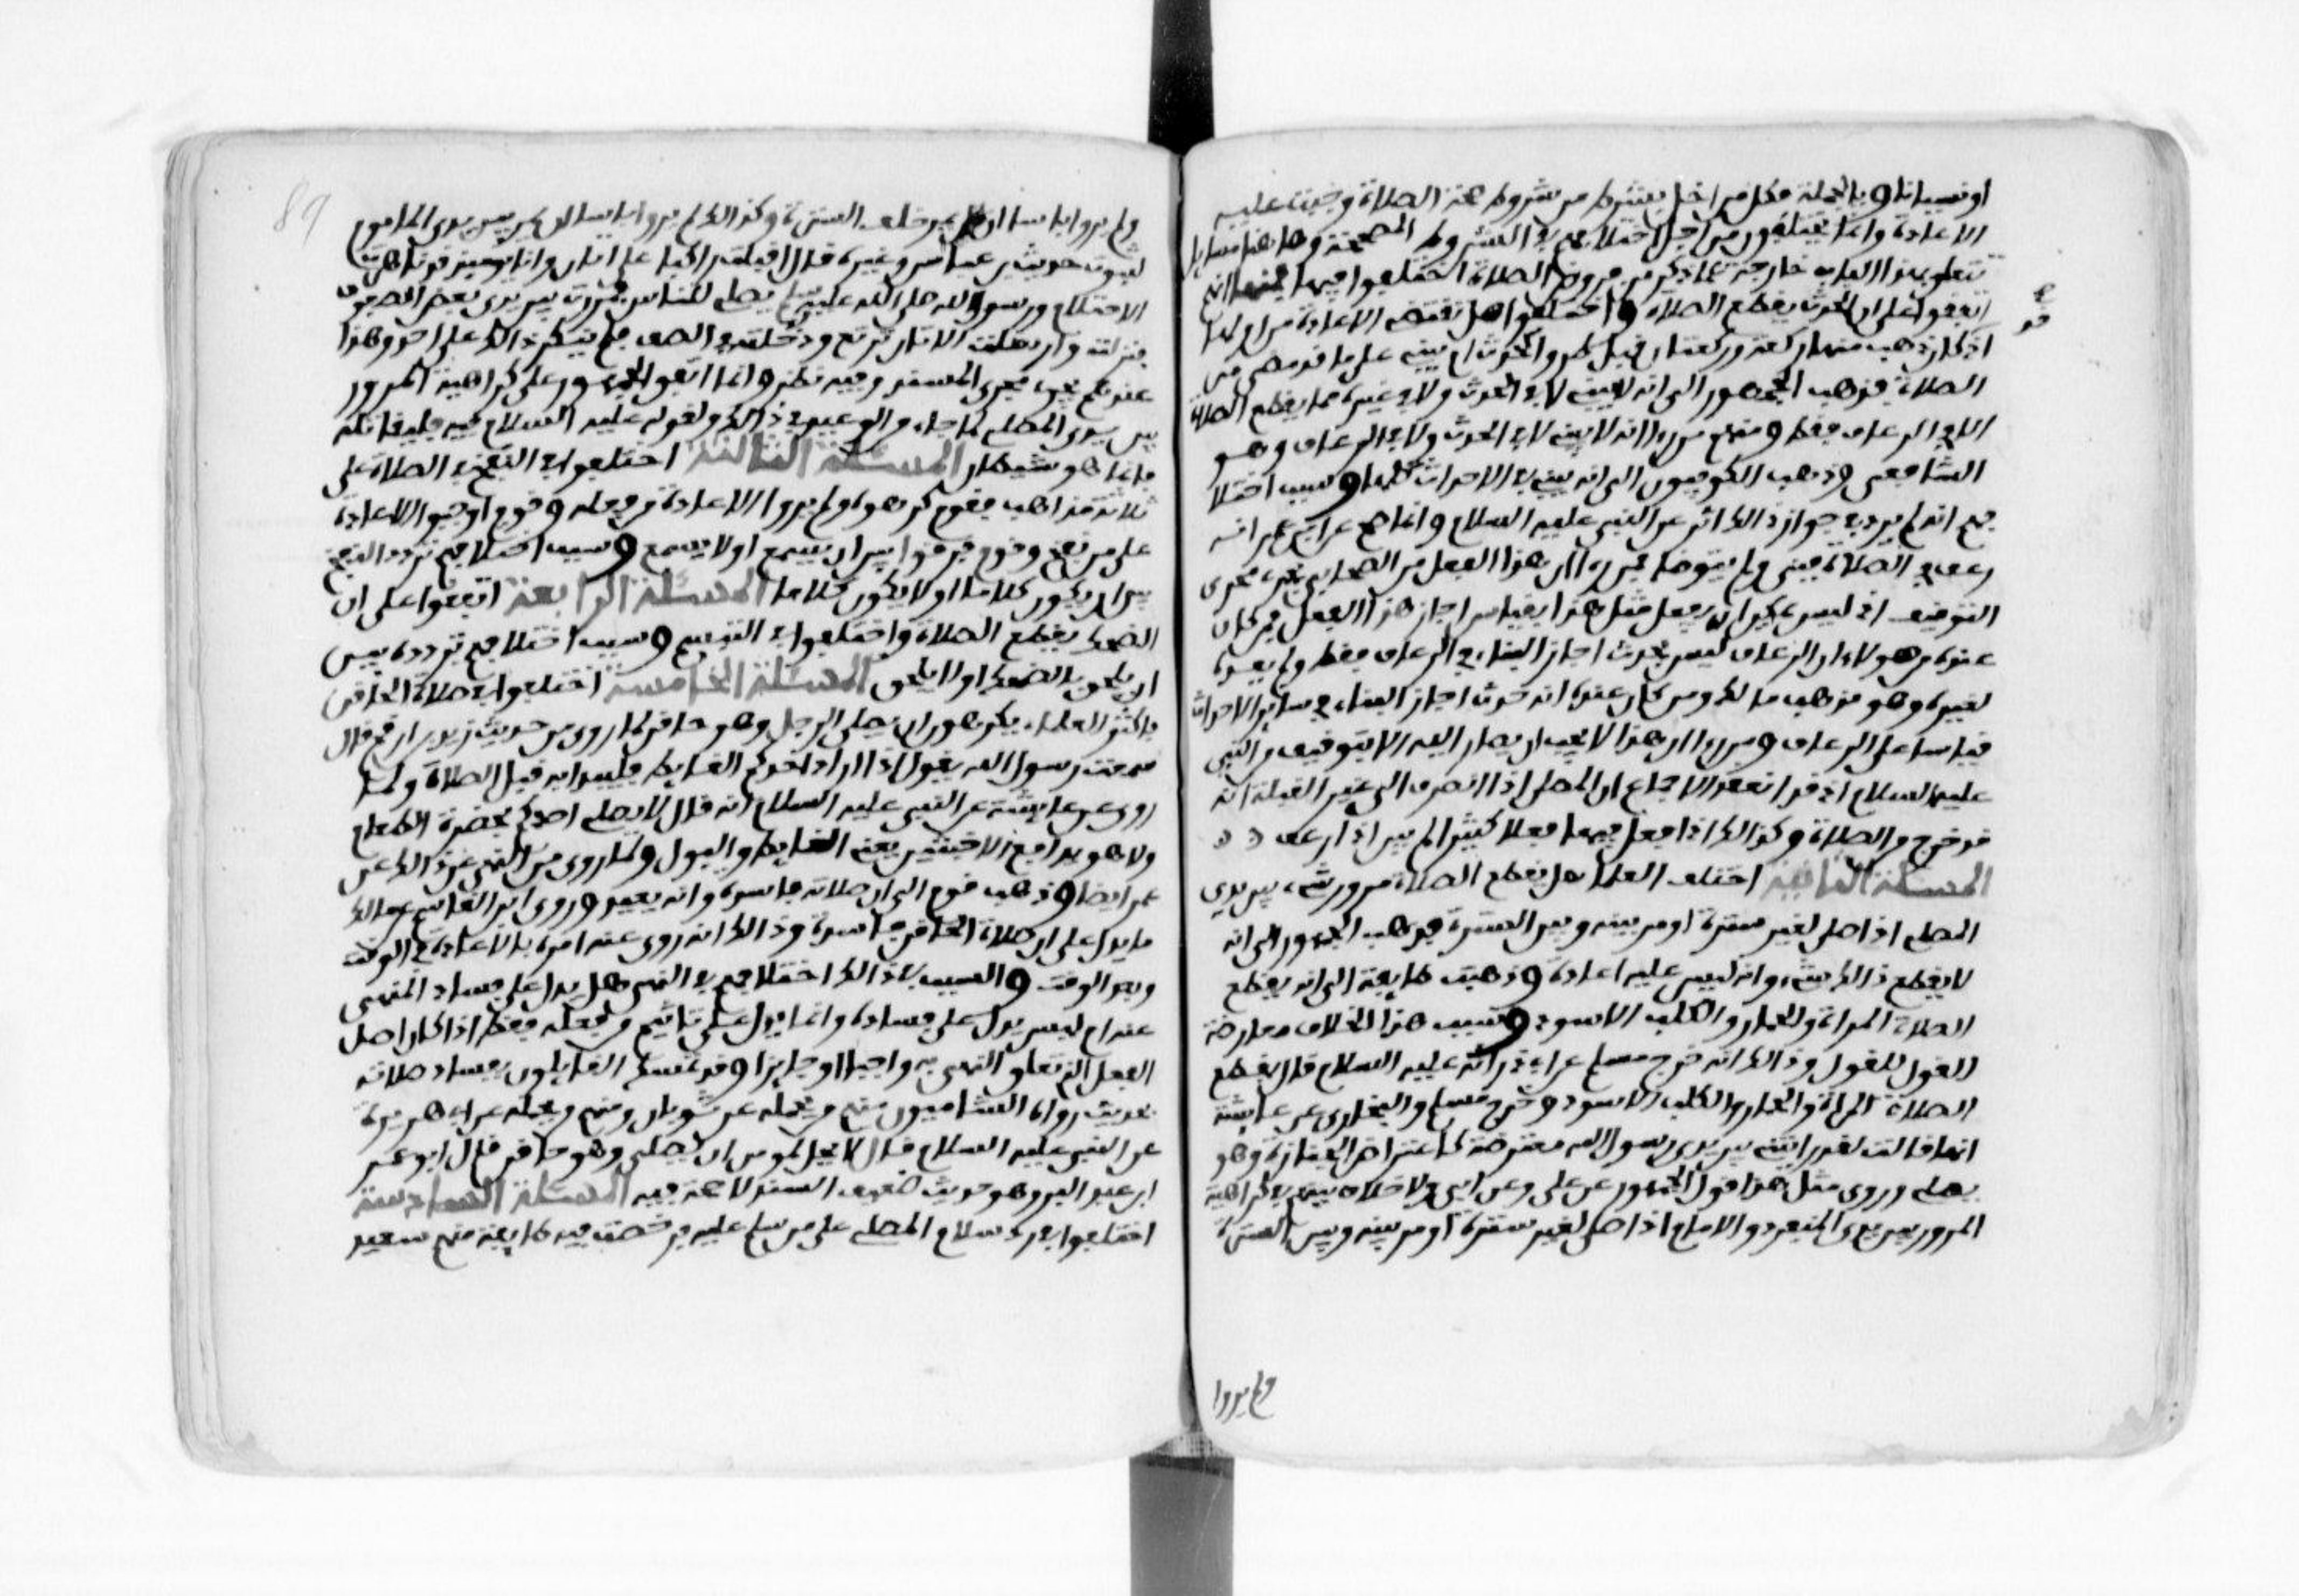 او نسيانا وبالجملة فكل من اخل بشرط من شروط صحة الصلاة وجبت عليه
الاعادة وانما يختلفون من اجل اختلافهم في الشروط المصححة وهاهنا مسايل
تتعلق بهذا الباب خارجة عما ذكر من فروض الصلاة اختلفوا فيها فمنها انهم
اتفقوا على ان الحدث يقطع الصلاة واختلفوا هل تقتضي الاعادة من اولها
اذ كان ذهب منها ركعة وركعتان قبل طرو الحدث ام يبني على ما قد مضى من
الصلاة فذهب الجمهور الى انه لا يبني لا في الحدث ولا في غيره مما يقطع الصلاة
الا في الرعاف فقط ومنهم من راى انه لا يبني لا في الحدث ولا في الرعاف وهو
الشافعي وذهب الكوفيون الى انه يبني في الاحداث كلها وسبب اختلا
فهم انه لم يرد في جواز ذالك اثر عن النبي عليه السلام وانما صح عن ابن عمر انه
رعف في الصلاة فبنى ولم يتوضا فمن راى ان هذا الفعل من الصحابي يجري مجرى
التوقيف اذ ليس يمكن ان يفعل مثل هذا بقياس اجاز هذا الفعل ومن كان
عنده من هولاء ان الرعاف ليس بحدث اجاز البناء في الرعاف فقط ولم يعده
لغيره وهو مذهب مالك ومن كان عنده انه حدث اجاز البناء في ساير الاحداث
قياسا على الرعاف ومن راى ان هذا لا يجب ان يصار اليه الا بتوقيف من النبي
عليه السلام اذ قد انعقد الاجماع ان المصلي اذا انصرف الى غير القبلة انه
قد خرج من الصلاة وكذالك اذا فعل فيها فعلا كثيرا لم يبن اذا رعف
المسئلة الثانية اختلف العلما هل يقطع الصلاة مرور شيء بين يدي
المصلي اذا صلى لغير سترة او مر بينه وبين السترة فذهب الجمهور الى انه
لا يقطع ذالك شيء وانه ليس عليه اعادة وذهبت طايفة الى انه يقطع
الصلاة المراة والحمار والكلب الاسود وسبب هذا الخلاف معارضة
القول للفعل وذالك انه خرج مسلم عن ابي ذر انه عليه السلام قال يقطع
الصلاة المراة والحمار والكلب الاسود وخرج مسلم والبخاري عن عايشة
انها قالت لقد رايتني بين يدي رسول الله معترضة كاعتراض الجنازة وهو
يصلي وروي مثل هذا قول الجمهور عن علي وعن ابي ولا خلاف بينهم في كراهية
المرور بين يدي المنفرد والامام اذا صلى لغير سترة او مر بينه وبين السترة
ولم يروا
ولم يروا باسا ان يمر خلف السترة وكذالك لم يروا باسا ان يمر بين يدي الماموم
لثبوت حديث ابن عباس وغيره قال اقبلت راكبا على اتان وانا يومئذ قد ناهزت
الاحتلام ورسول الله صلى الله عليه يصلي للناس فمررت بين يدي بعض الصفوف
فنزلت وارسلت الاتان ترتع ودخلت في الصف فلم ينكر ذالك علي احد وهذا
عندهم يجري مجرى المسند وفيه نظر وانما اتفق الجمهور على كراهية المرور
بين يدي المصلي لما جاء من الوعيد في ذالك ولقوله عليه السلام فيه فليقاتله
فانما هو شيطان المسئلة الثالثة اختلفوا في النفخ في الصلاة على
ثلاثة مذاهب فقوم كرهوه ولم يروا الاعادة من فعله وقوم اوجبوا الاعادة
على من نفخ وقوم فرقوا بين ان يسمع او لا يسمع وسبب اختلافهم تردد النفخ
بين ان يكون كلاما او لا يكون كلاما المسئلة الرابعة اتفقوا على ان
الضحك يقطع الصلاة واختلفوا في التبسم وسبب اختلافهم تردده بين
ان يلحق بالضحك او لا يلحق المسئلة الخامسة اختلفوا في صلاة الحاقن
فاكثر العلماء يكرهون ان يصلي الرجل وهو حاقن لما روي من حديث زيد بن ارقم قال
سمعت رسول الله يقول اذا اراد احدكم الغايط فليبدا به قبل الصلاة ولما
روي عن عايشة عن النبي عليه السلام انه قال لا يصلي احدكم بحضرة الطعام
ولا هو يدافع الاخبثين يعني الغايط والبول ولما روي من النهي عن ذالك عن
عمر ايضا وذهب قوم الى ان صلاته فاسدة وانه يعيد وروى ابن القاسم عن مالك
ما يدل على ان صلاة الحاقن فاسدة وذالك انه روي عنه امره بالاعادة في الوقت
وبعد الوقت والسبب في ذالك اختلافهم في النهي هل يدل على فساد المنهي
عنه ام ليس يدل على فساده وانما يدل على تاثيم من فعله فقط اذا كان اصل
الفعل الذي تعلق النهي به واجبا او جايزا وقد تمسك القايلون بفساد صلاته
بحديث رواه الشاميون منهم من يجعله عن ثوبان ومنهم من يجعله عن ابي هريرة
عن النبي عليه السلام قال لا يحل لمومن ان يصلي وهو حاقن قال ابو عمر
ابن عبد البر وهو حديث ضعيف السند لا حجة فيه المسئلة السادسة
اختلفوا في رد سلام المصلي على من سلم عليه فرخصت فيه طايفة منهم سعيد
89